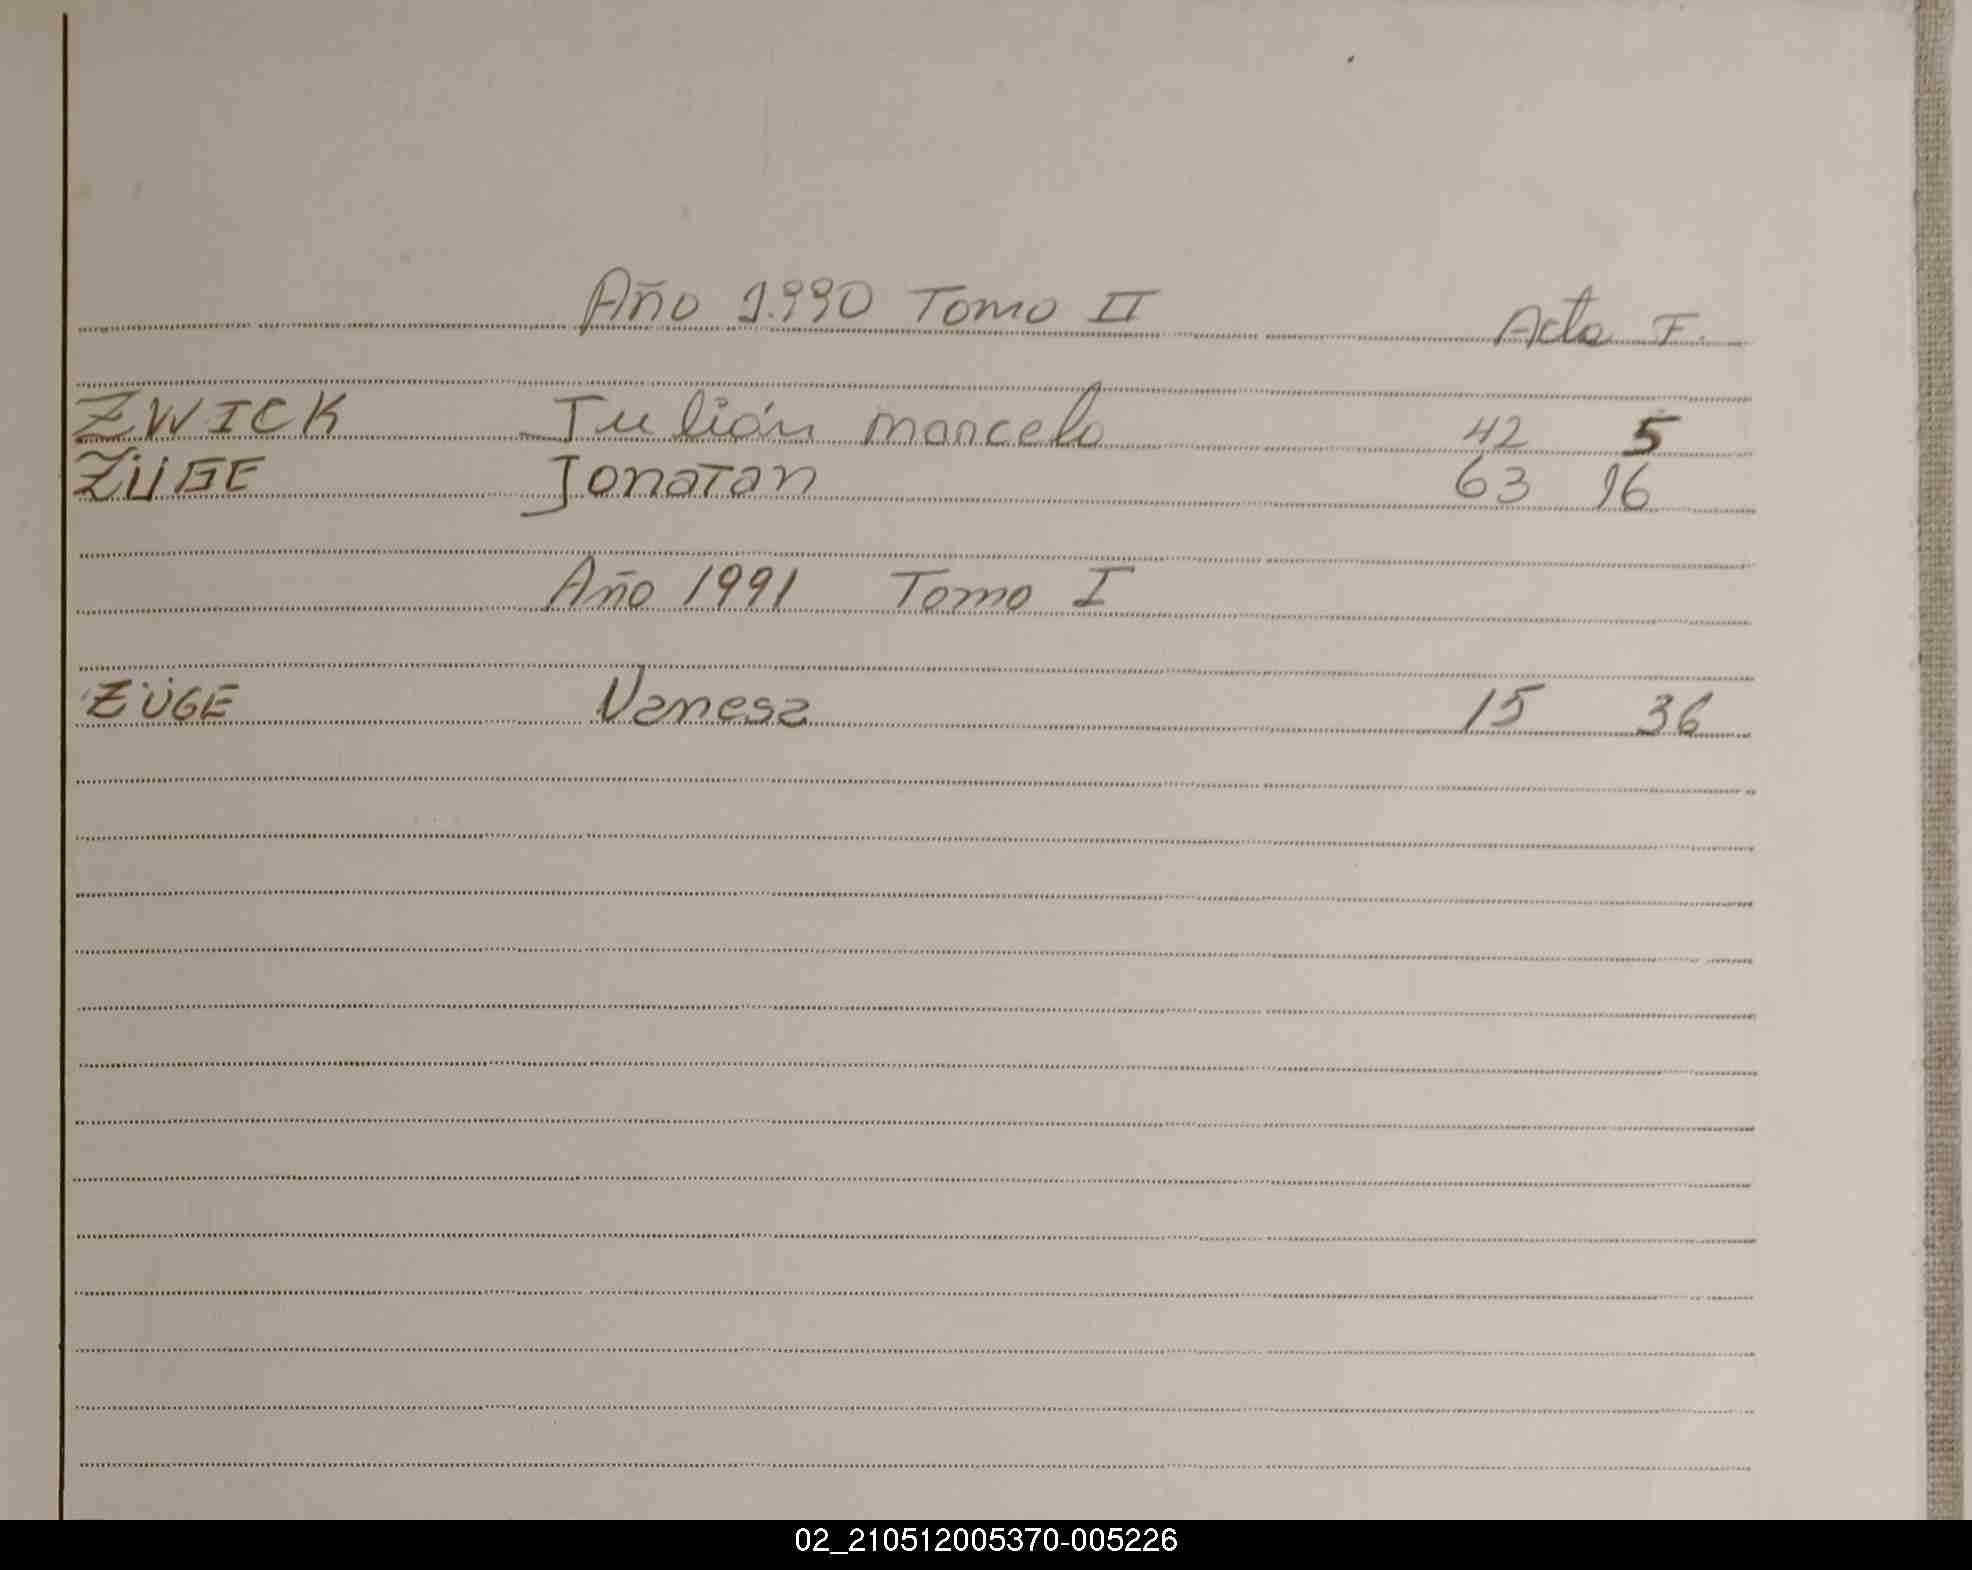 Año 1.990 Tomo II Acta F.
ZWICK Julián marcelo 42 5
ZÜGE Jonatan 63 16
Año 1991 Tomo I
ZÜGE Vanesa 15 36
02_210512005370-005226